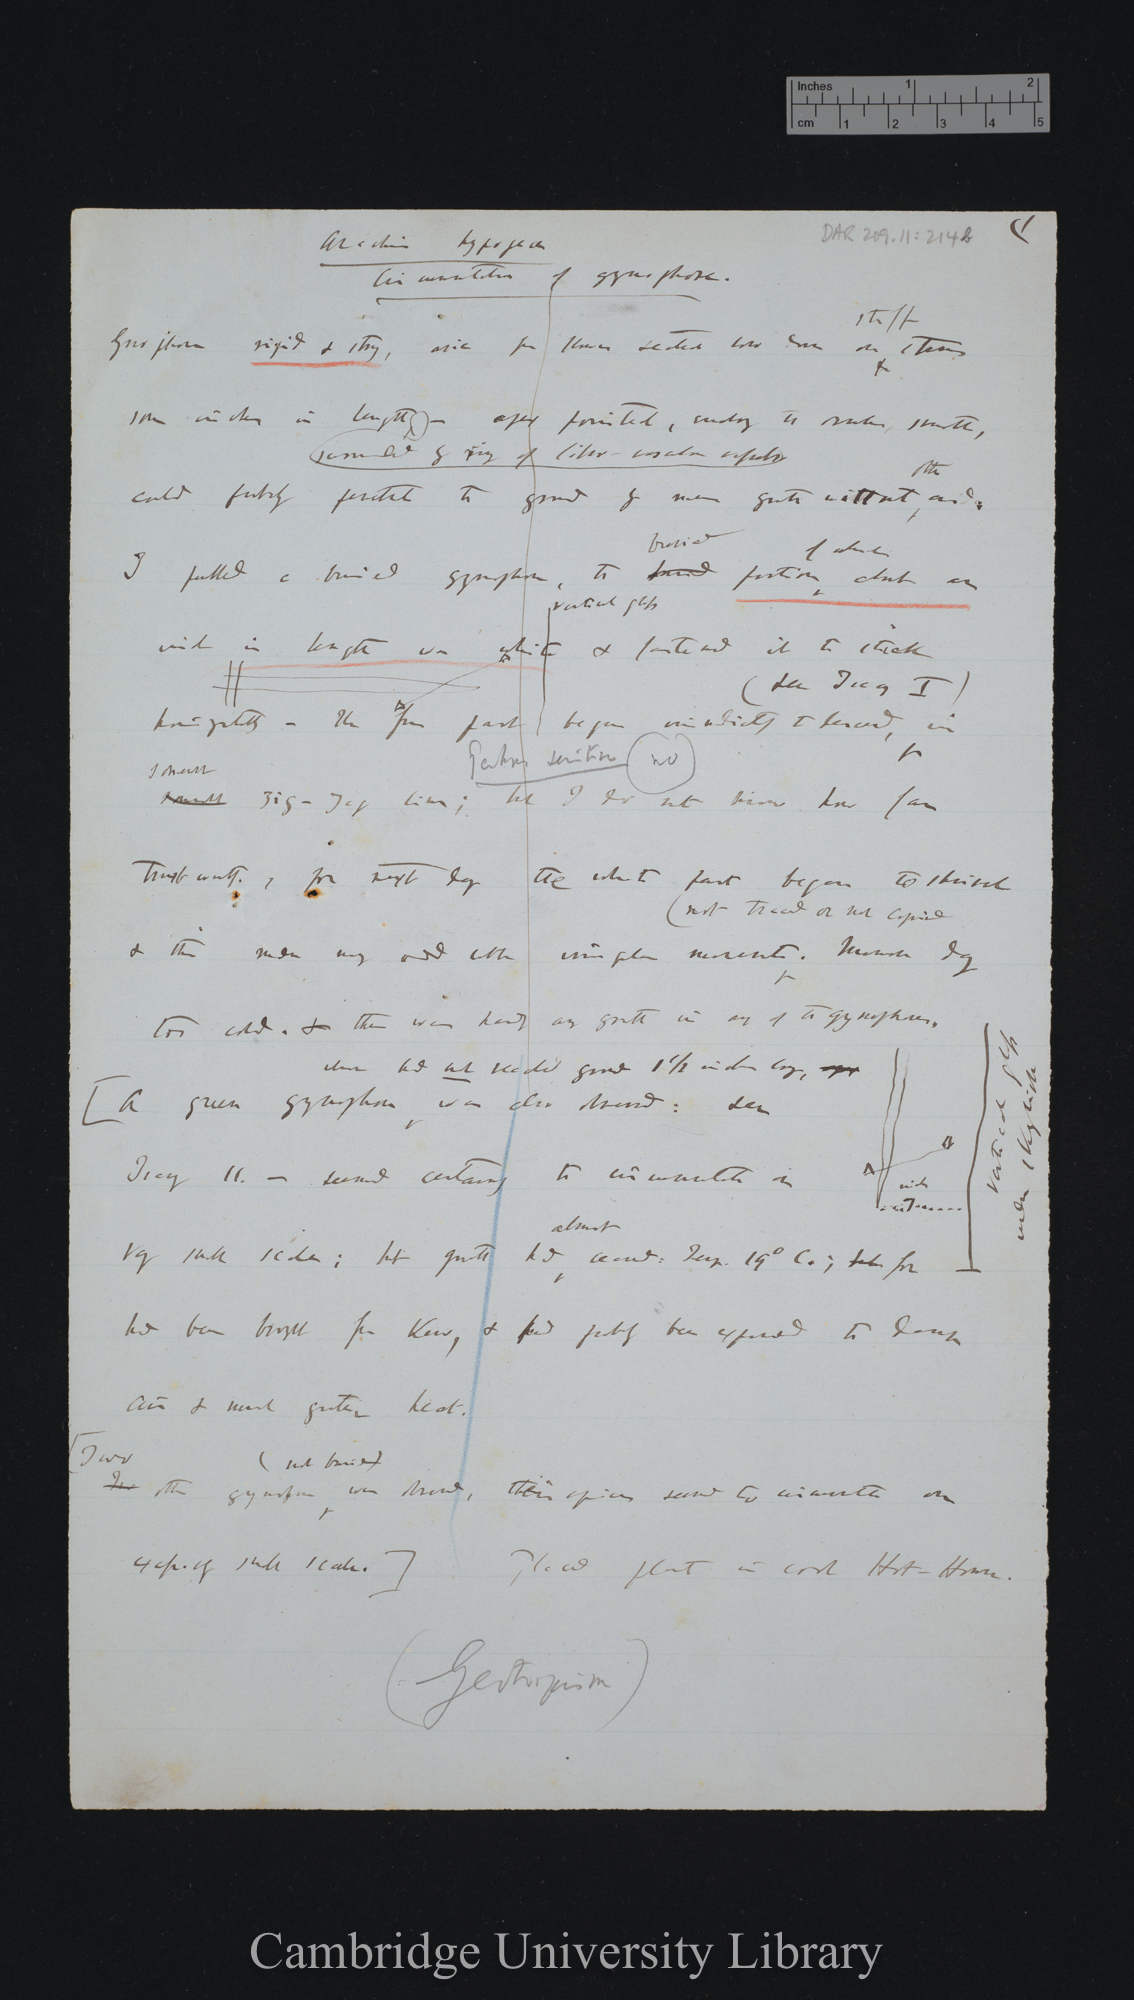 Inches 1 2
cm 1 2 3 4 5
DAR 209.11: 214b
(1
Arachis hypogaea
Circumnutation of gynophore.
stiff
Gynophore rigid & stiff, arise from flowers seated low down on stems
some inches in length) — apex pointed, smooth,
surrounded by ring of fibro-vascular
other
could probably penetrate the ground by mere growth without aid.
buried of which
I pulled a buried gynophore, the buried portion about an
vertical glass
inch in length was white & fastened it to stick
(see Tracing I)
horizontally — The free part began immediately to ascend, in
Perhaps sensitive (no)
somewhat
zig-zag line; but I do not know how far
trustworthy, for next day the white part began to shrink
(not traced or not copied
& this made any other irregular movements. Moreover day
too cold. & there was hardly any growth in any of the gynophores.
which had not reached ground 1 1/2 inches long,
[A green gynophore, was also observed: see
vertical glass
when
Tracing II. — seemed certainly to circumnutate on
almost
very small scale; but growth had ceased: Temp. 19° C.; for
had been brought from Kew, & had probably been exposed to damp
air & much greater heat.
[Two
(not buried)
other gynophores were observed, their apices seemed to circumnutate on
excessively small scale.] Placed plant in cool Hot-House.
(Geotropism)
Cambridge University Library